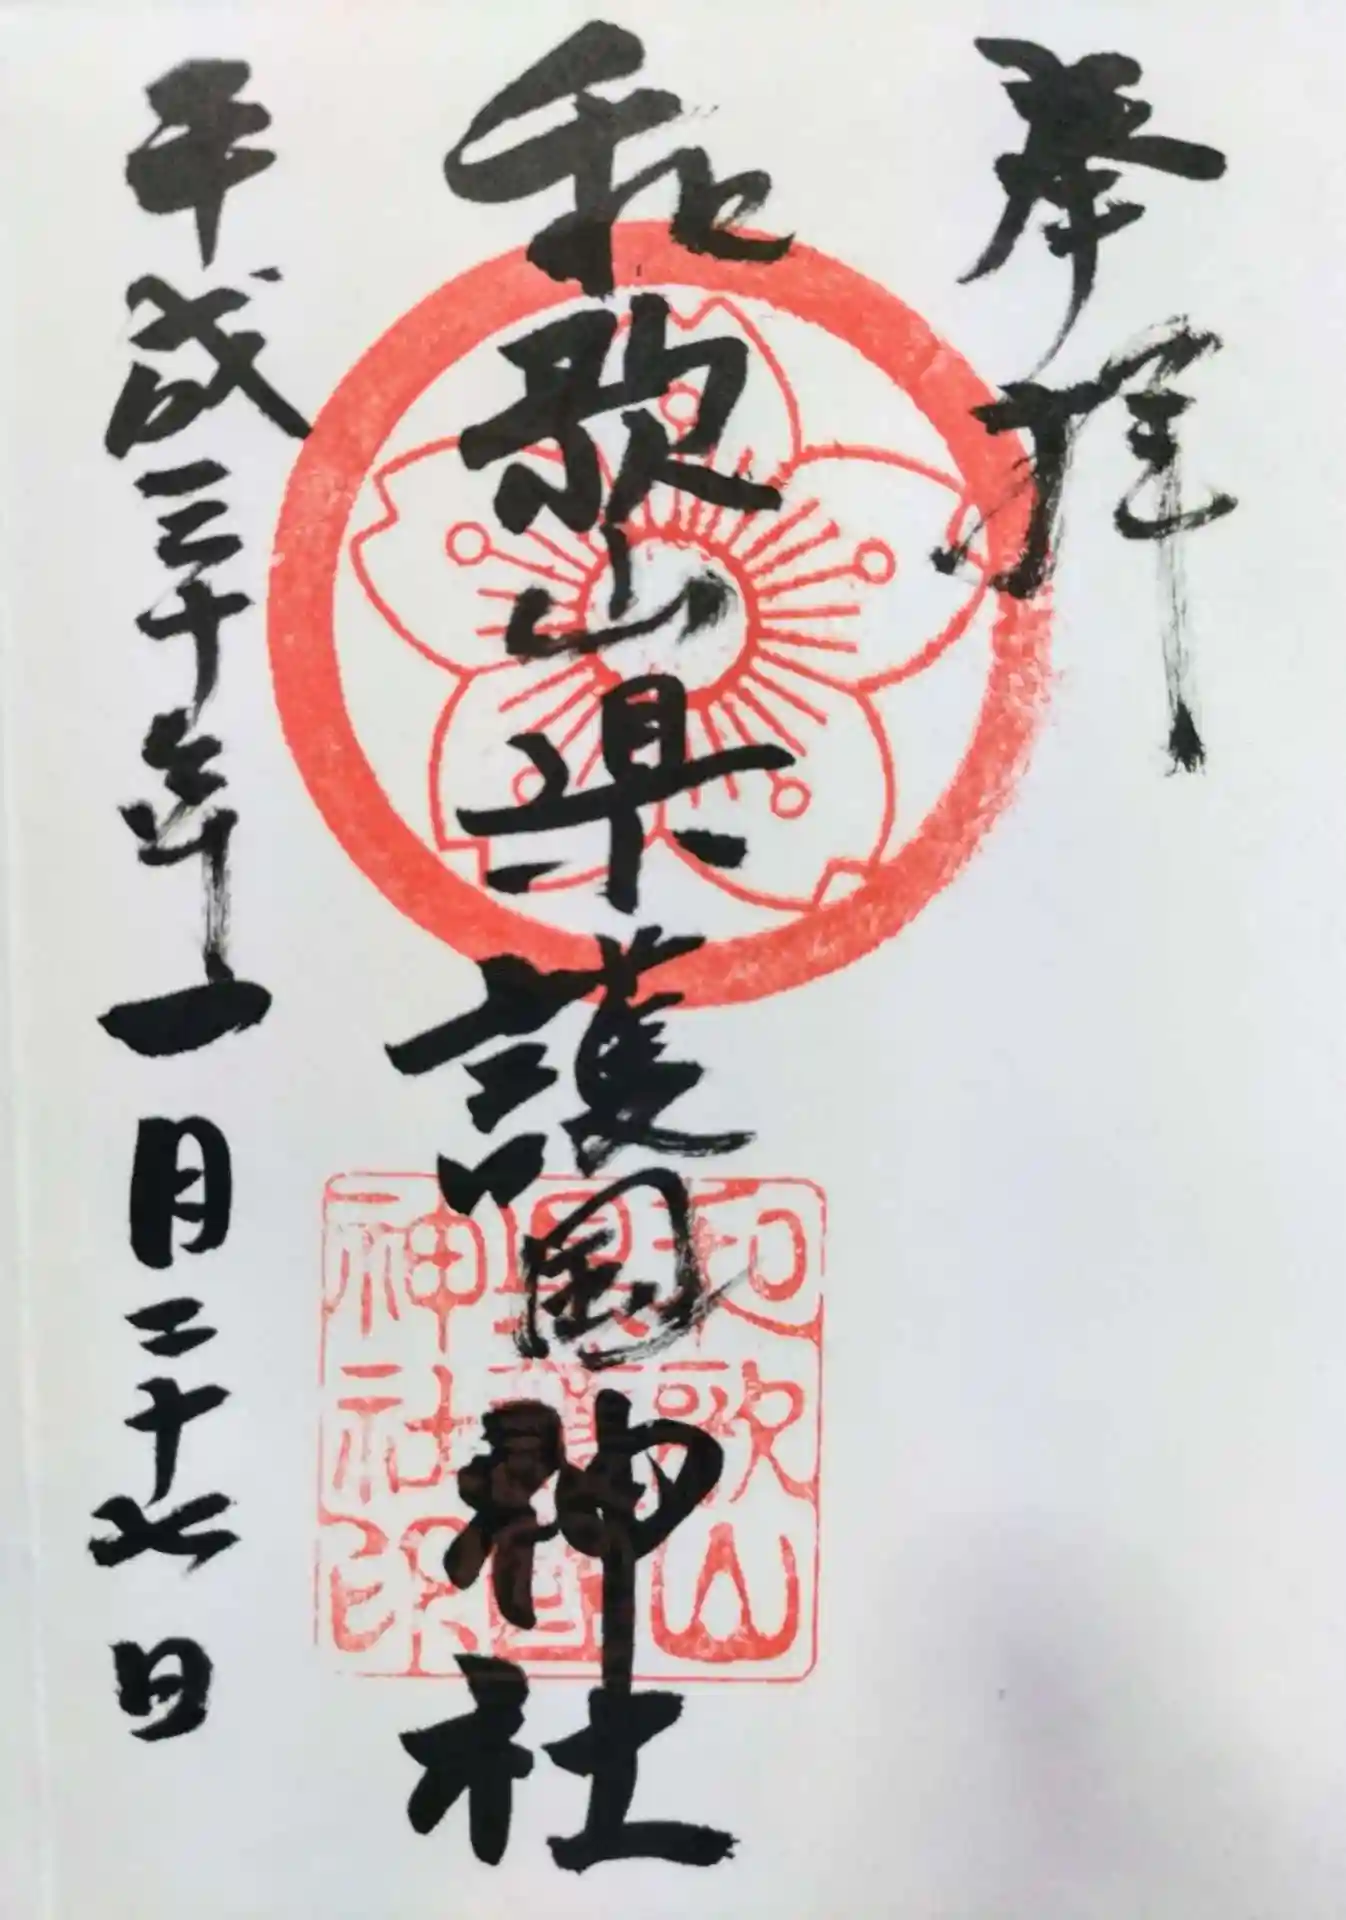 奉拝
和歌山県護国神社
和歌山
県護国
神社印
平成三十年一月二十七日